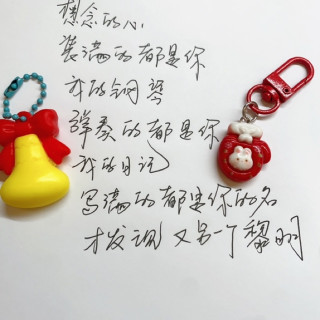 想念的心
装满的都是你
我的钢琴
弹奏的都是你
我的日记
写满的都是你的名
才发现又另一个黎明